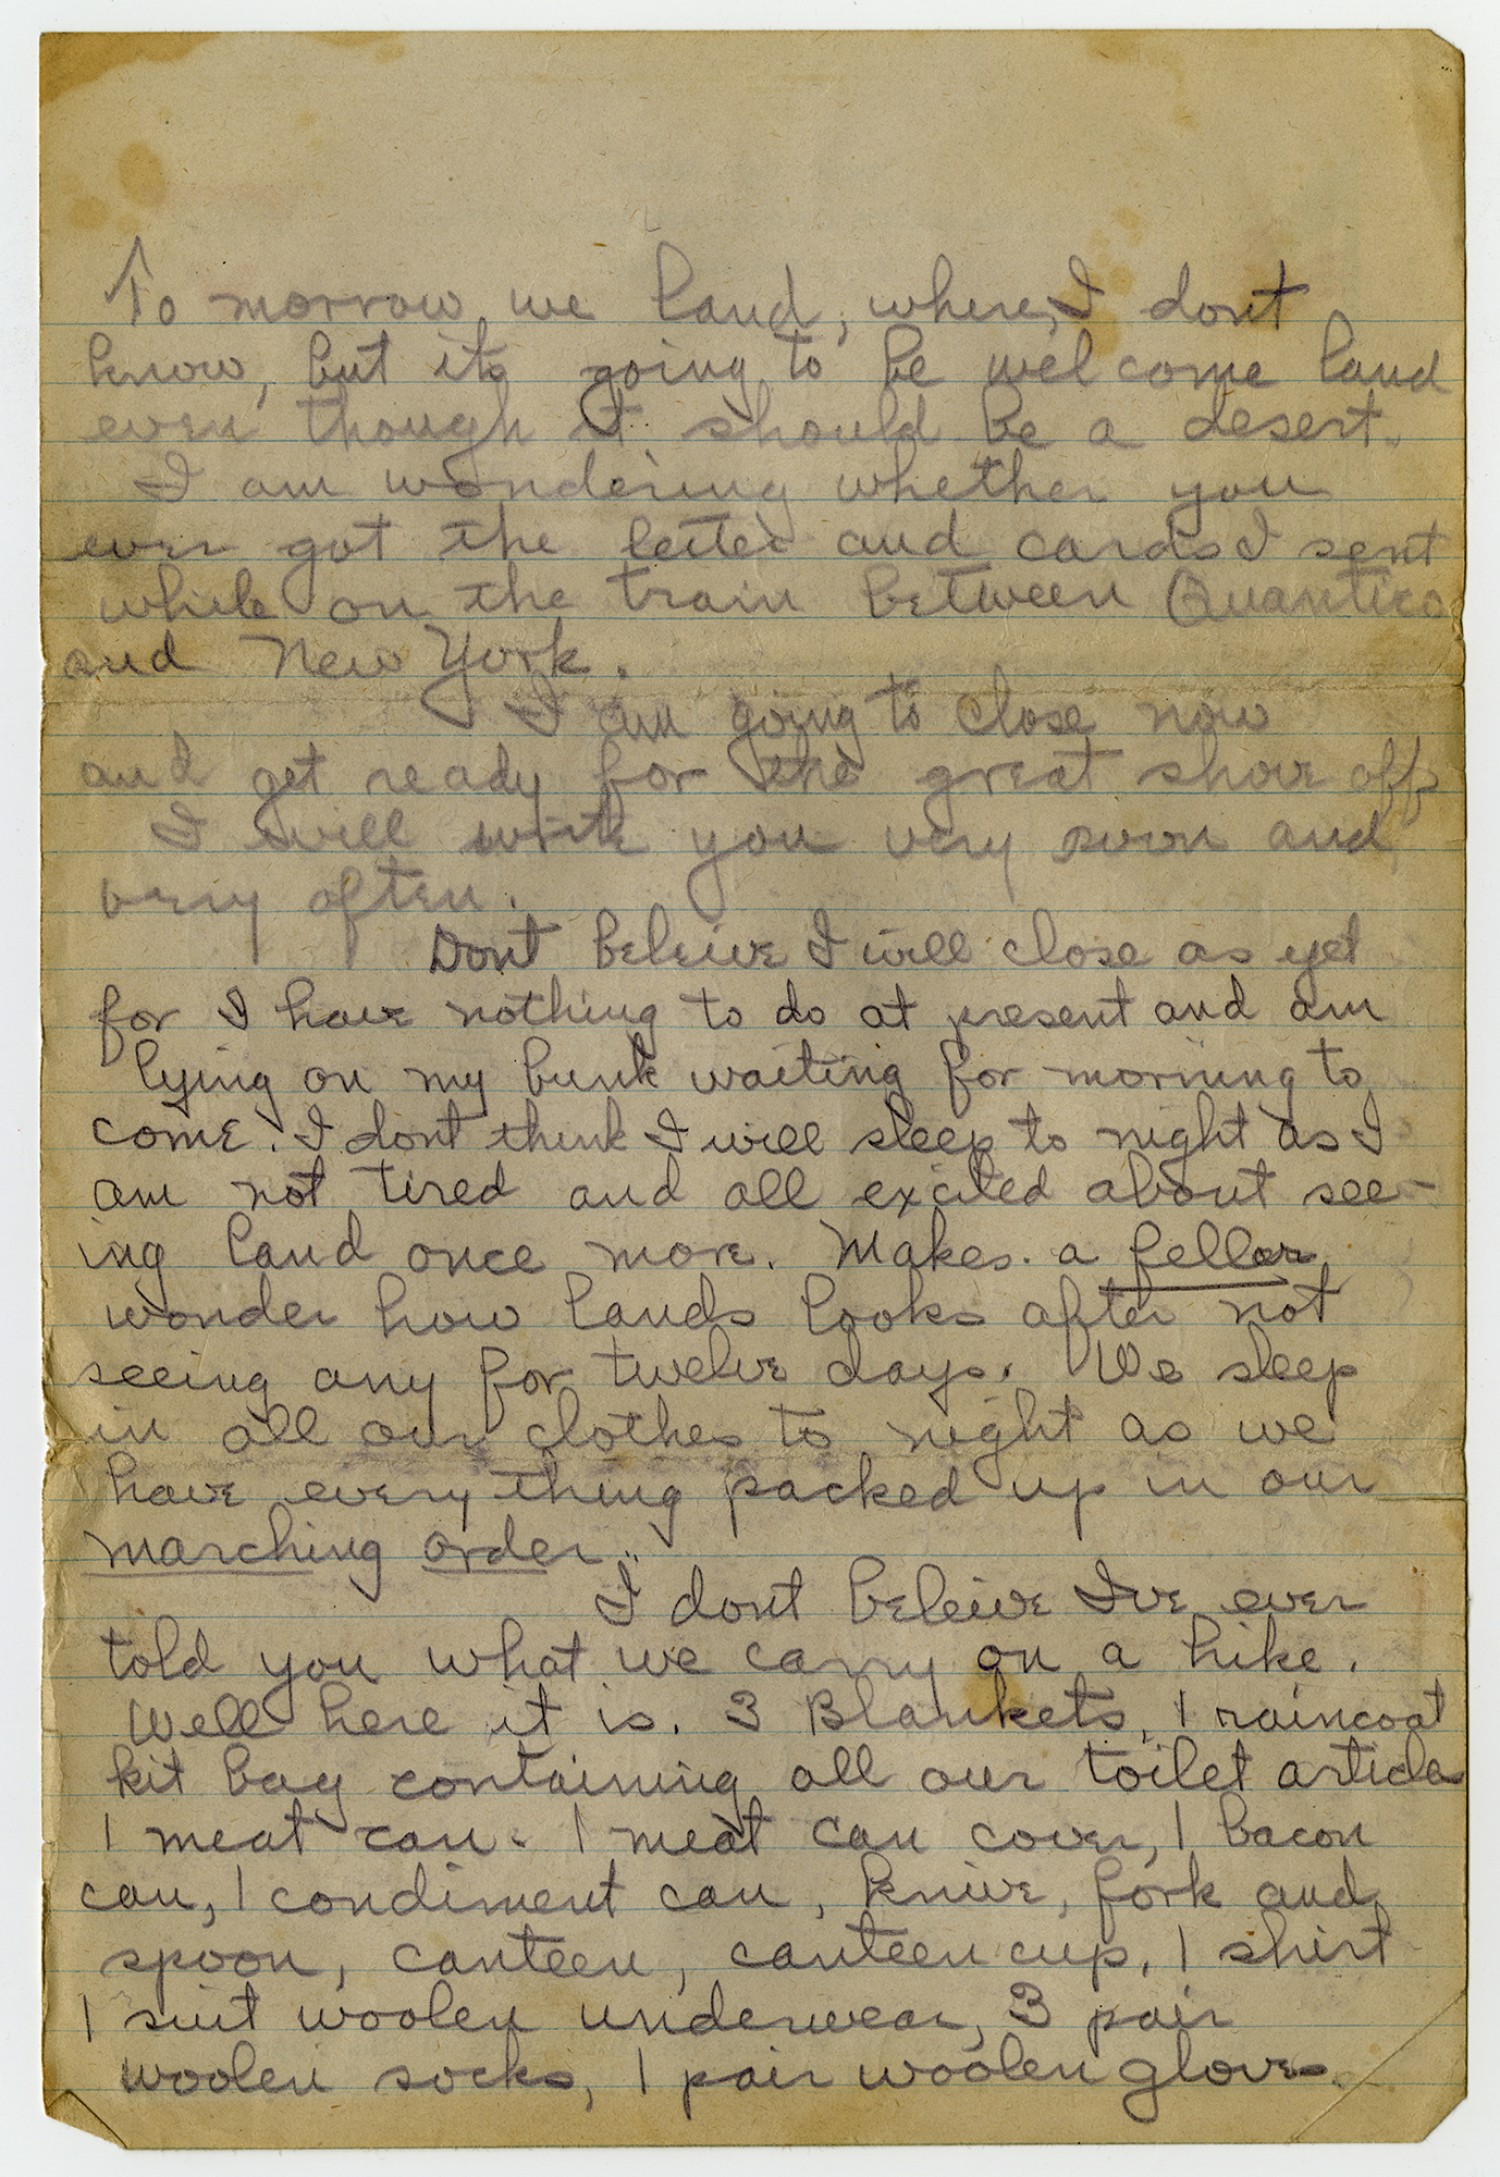 To morrow we land, where, I dont
know, but its going to be welcome land
even though it should be a desert.
I am wondering whether you
ever got the letter and cards I sent
while on the train between Quantico
and New York.
I am going to close now
and get ready for the great shove off
I will write you very soon and
very often.
Dont beleive I will close as yet
for I have nothing to do at present and am
lying on my bunk waiting for morning to
come. I dont think I will sleep to night as I
am not tired and all excited about see-
ing land once more. Makes a fellow
wonder how lands looks after not
seeing any for twelve days. We sleep
in all our clothes to night as we
have every thing packed up in our
marching order.
I dont beleive Ive ever
told you what we carry on a hike.
Well here it is. 3 Blankets, 1 raincoat
kit bag containing all our toilet articles
1 meat can. 1 meat can cover, 1 bacon
can, 1 condiment can, knive, fork and
spoon, canteen, canteen cup, 1 shirt
1 suit woolen underwear, 3 pair
woolen socks, 1 pair woolen gloves.